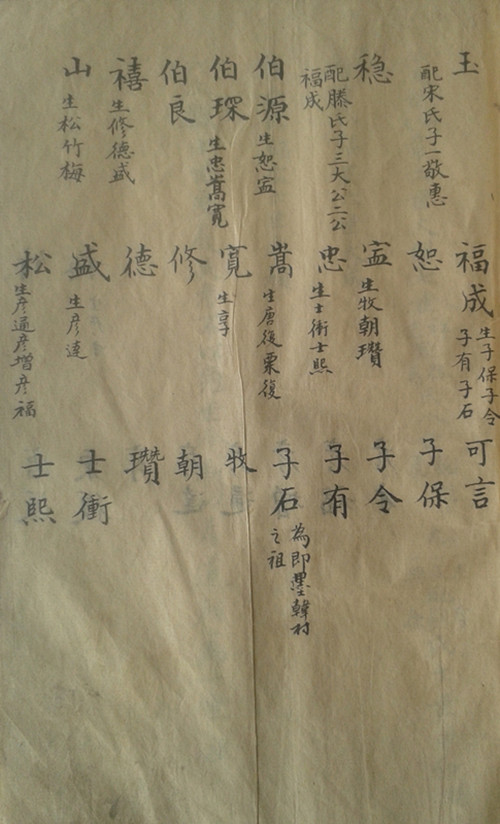 玉
配宋氏子一敬惠
稳
配滕氏子三大公二公
福成
伯源
生恕宣
伯琛
生忠嵩寬
伯良
禧
生修德盛
山
生松竹梅
福成
生子保子令
子有子石
恕
宣
生牧朝瓚
忠
生士衝士熙
嵩
生唐復栗復
寬
生享
修
德
盛
生彦達
松
生彦通彦增彦福
可言
子保
子令
子有
子石
為即墨韓村
之祖
牧
朝
瓚
士衝
士熙